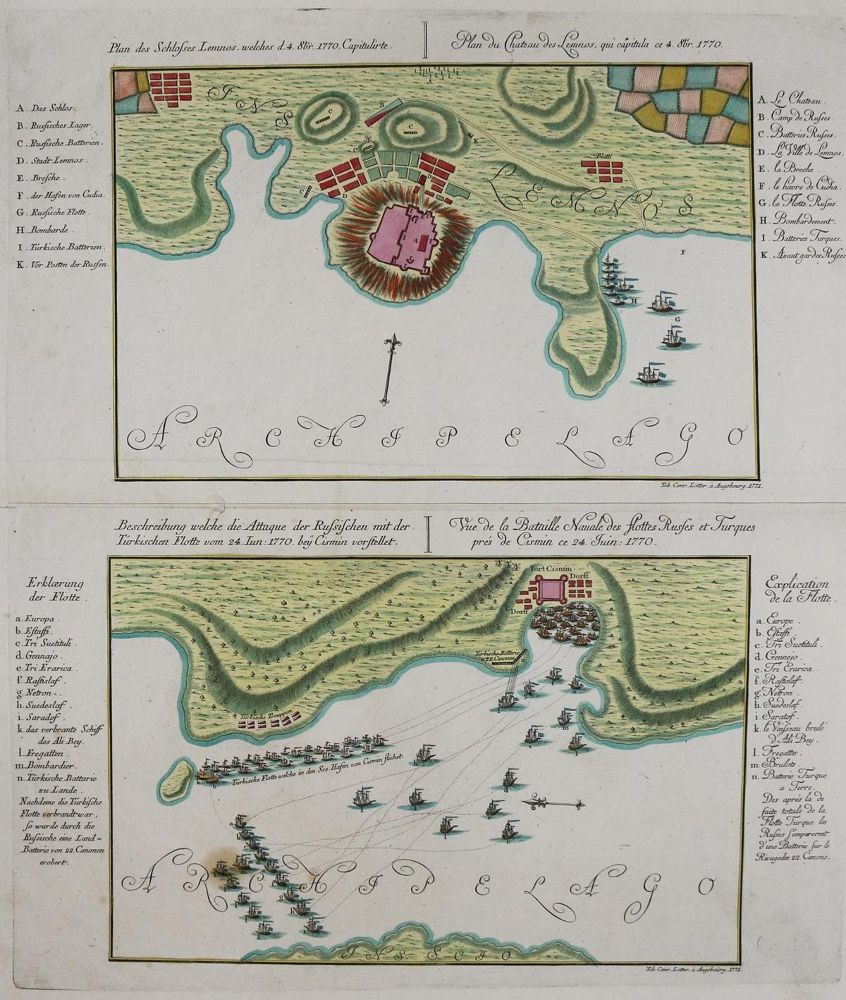 Plan des Schlosses Lemnos, welches d. 4. 8br. 1770. Capitulirte.
Plan du Chateau des Lemnos, qui capitula ce 4. 8br. 1770.
A. Das Schlos.
B. Russisches Lager.
C. Russische Batterien.
D. Stadt Lemnos.
E. Bresche.
F. der Hafen von Cudia.
G. Russische Flotte.
H. Bombarde.
I. Türkische Batterien.
K. Vor Posten der Russen.
A. Le Chateau.
B. Camp de Russes.
C. Batteries Russes.
D. La Ville de Lemnos.
E. la Breche
F. le havre de Cudia.
G. la Flotte Russes.
H. Bombardement.
I. Batteries Turques.
K. Avant gardes Russes
INS
LEMNOS
B
C
C
Blatti
C
D
D
A
F
H
G
ARCHIPELAGO
Tob. Conr. Lotter. à Augsbourg. 1771.
Beschreibung welche die Attaque der Russischen mit der
Türkischen Flotte vom 24. Iun: 1770. beÿ Cismin vorstellet.
Vue de la Bataille Navale des flottes Russes et Turques
prés de Cismin ce 24. Juin: 1770.
Erklærung
der Flotte.
a. Europa.
b. Estaffi.
c. Tri Suetituli.
d. Gennajo.
e. Tri Erarica.
f. Rastislaf.
g. Netron.
h. Suedeslaf.
i. Saradof.
k. das verbrante Schiff
des Ali Bey.
l. Fregatten.
m. Bombardier.
n. Türkische Battarie
zu Lande.
Nachdeme die Türkische
Flotte verbrandt war,
so wurde durch die
Russische eine Land-
Batterie von 22. Canonen
erobert.
Explication
de la Flotte.
a. Europe.
b. Estaffi.
c. Tri Suetituli.
d. Gennejo.
e. Tri Erarica.
f. Rastislaf.
g. Netron.
h. Suedeslaf.
i. Saratof.
k. le Vaisseau brulé
d'Ali Bey.
l. Fregattes.
m. Brulots.
n. Batterie Turque
a Terre.
Des après la de
faite totale de la
Flotte Turque les
Russes s'emparerent
d'une Batterie sur le
Rivage de 22. Canons.
Fort Cismin
Dorff
Dorff
Türkische Batterie
v. 22. Canonen
m
Türkische Trouppen
Türkische Flotte welche in den See Hafen von Cismin flichtet.
ARCHIPELAGO
INS. SCIO
Tob. Conr. Lotter. à Augsbourg. 1771.